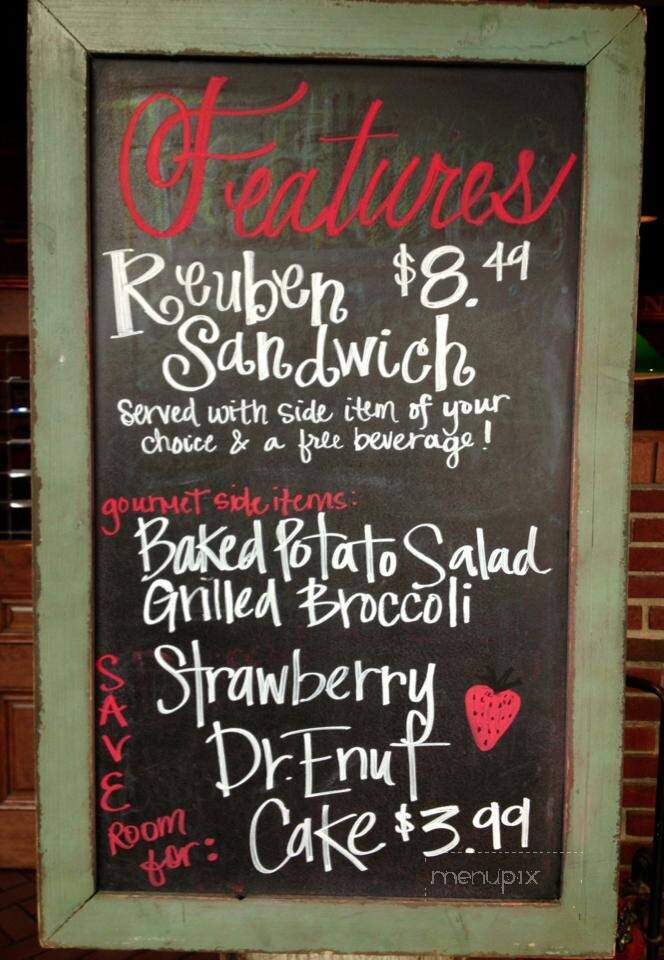 Features
Reuben $8.49
Sandwich
Served with side item of your
choice & a free beverage!
gourmet side items:
Baked Potato Salad
Grilled Broccoli
SAVE
Room
for:
Strawberry
Dr. Enuf
Cake $3.99
menupix